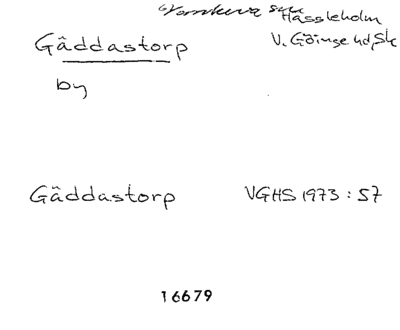 Hässleholm
Gäddastorp V. Göinge hd, Sk
by
Gäddastorp VGHS 1973 : 57
16679